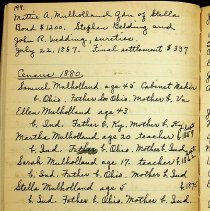 199.
Mattie A. Mulholland Gdn of Stella
Bond $1200. Stephen Belding and
John R. Wedding, sureties.
July 22, 1887. Final settlement $337
Census 1880.
Samuel Mulholland age 45 Cabinet Maker
b. Ohio, Father b Ohio, Mother b. Va
Ellen Mulholland age 43
b. Ind. Father b. Ky. Mother b. Ky.
Martha Mulholland 20 teacher
b. Ind. Father b. Ohio, Mother b Ind
Sarah Mulholland 17. teacher b 1862
b. Ind Father b. Ohio, Mother b. Ind
Stella Mulholland age 5 b 1875
b. Ind. Father b. Ohio, Mother b. Ind.